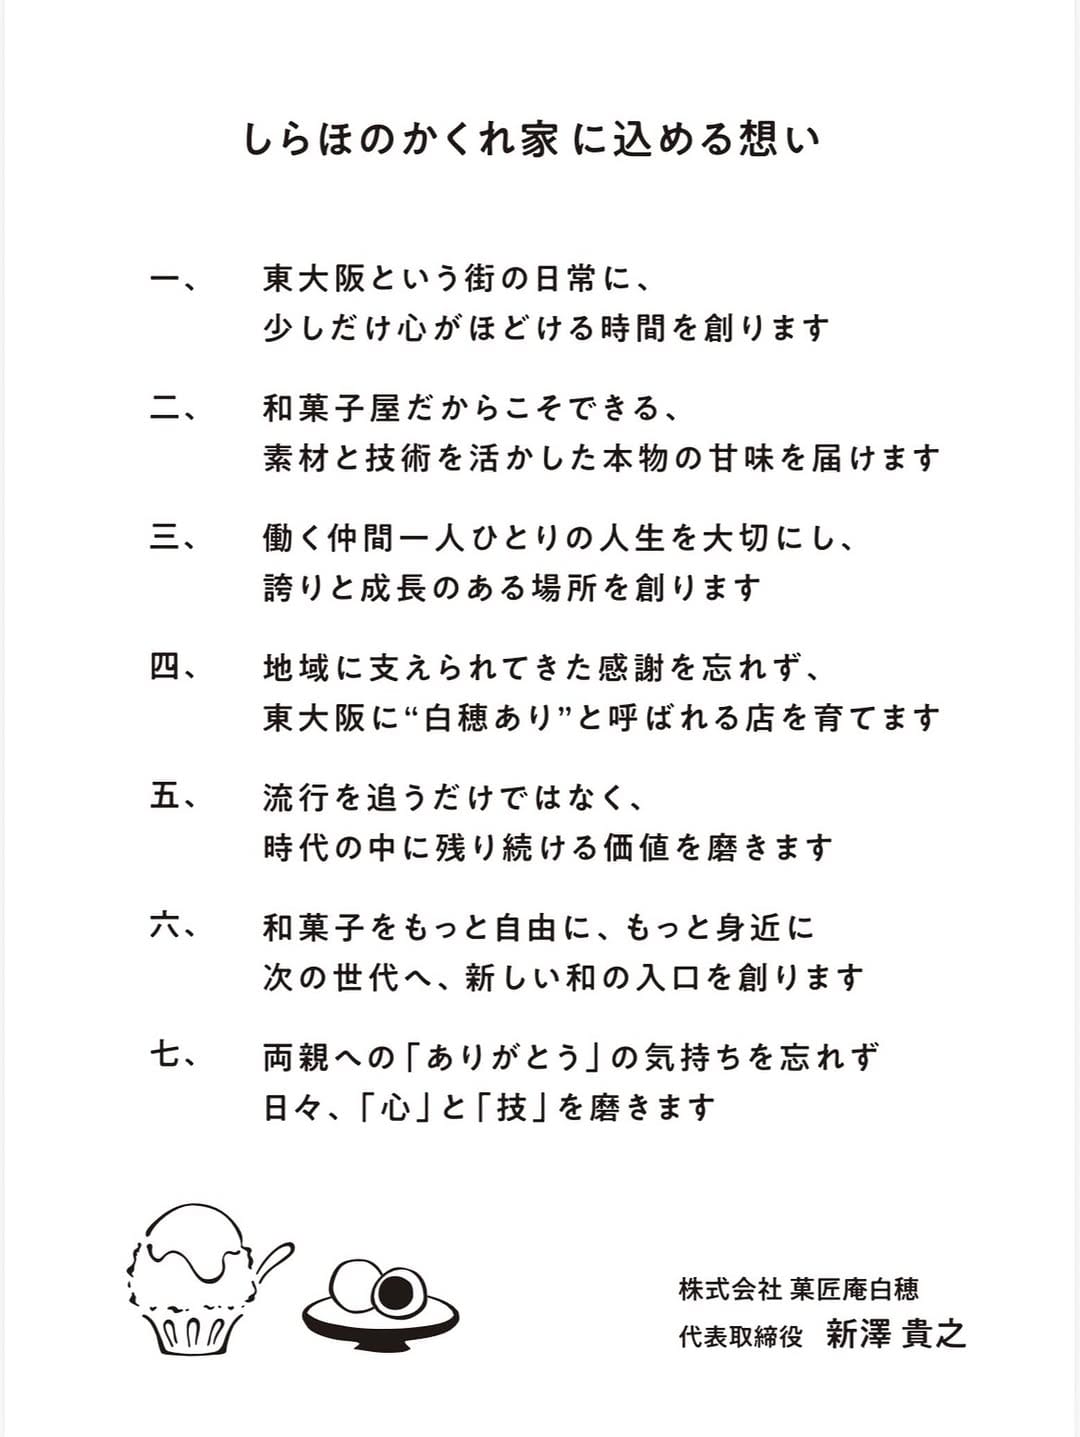 しらほのかくれ家 に込める想い
一、 東大阪という街の日常に、
少しだけ心がほどける時間を創ります
二、 和菓子屋だからこそできる、
素材と技術を活かした本物の甘味を届けます
三、 働く仲間一人ひとりの人生を大切にし、
誇りと成長のある場所を創ります
四、 地域に支えられてきた感謝を忘れず、
東大阪に“白穂あり”と呼ばれる店を育てます
五、 流行を追うだけではなく、
時代の中に残り続ける価値を磨きます
六、 和菓子をもっと自由に、もっと身近に
次の世代へ、新しい和の入口を創ります
七、 両親への「ありがとう」の気持ちを忘れず
日々、「心」と「技」を磨きます
株式会社 菓匠庵白穂
代表取締役 新澤 貴之